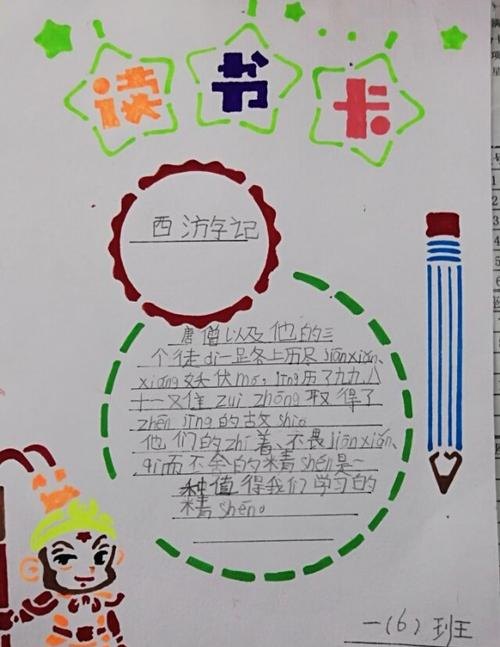 读书卡
西游字记
唐僧以及他的三
个徒di一路上历尽jiānxiǎn、
xiáng妖伏mó,jīng历了九九八
十一又隹zuì zhōng取得了
zhēn jīng的故shio
他们的zhí着、不畏jiānxiǎn、
qì而不舍的精shén是一
种值得我们学习的
精shéno
一(6)班